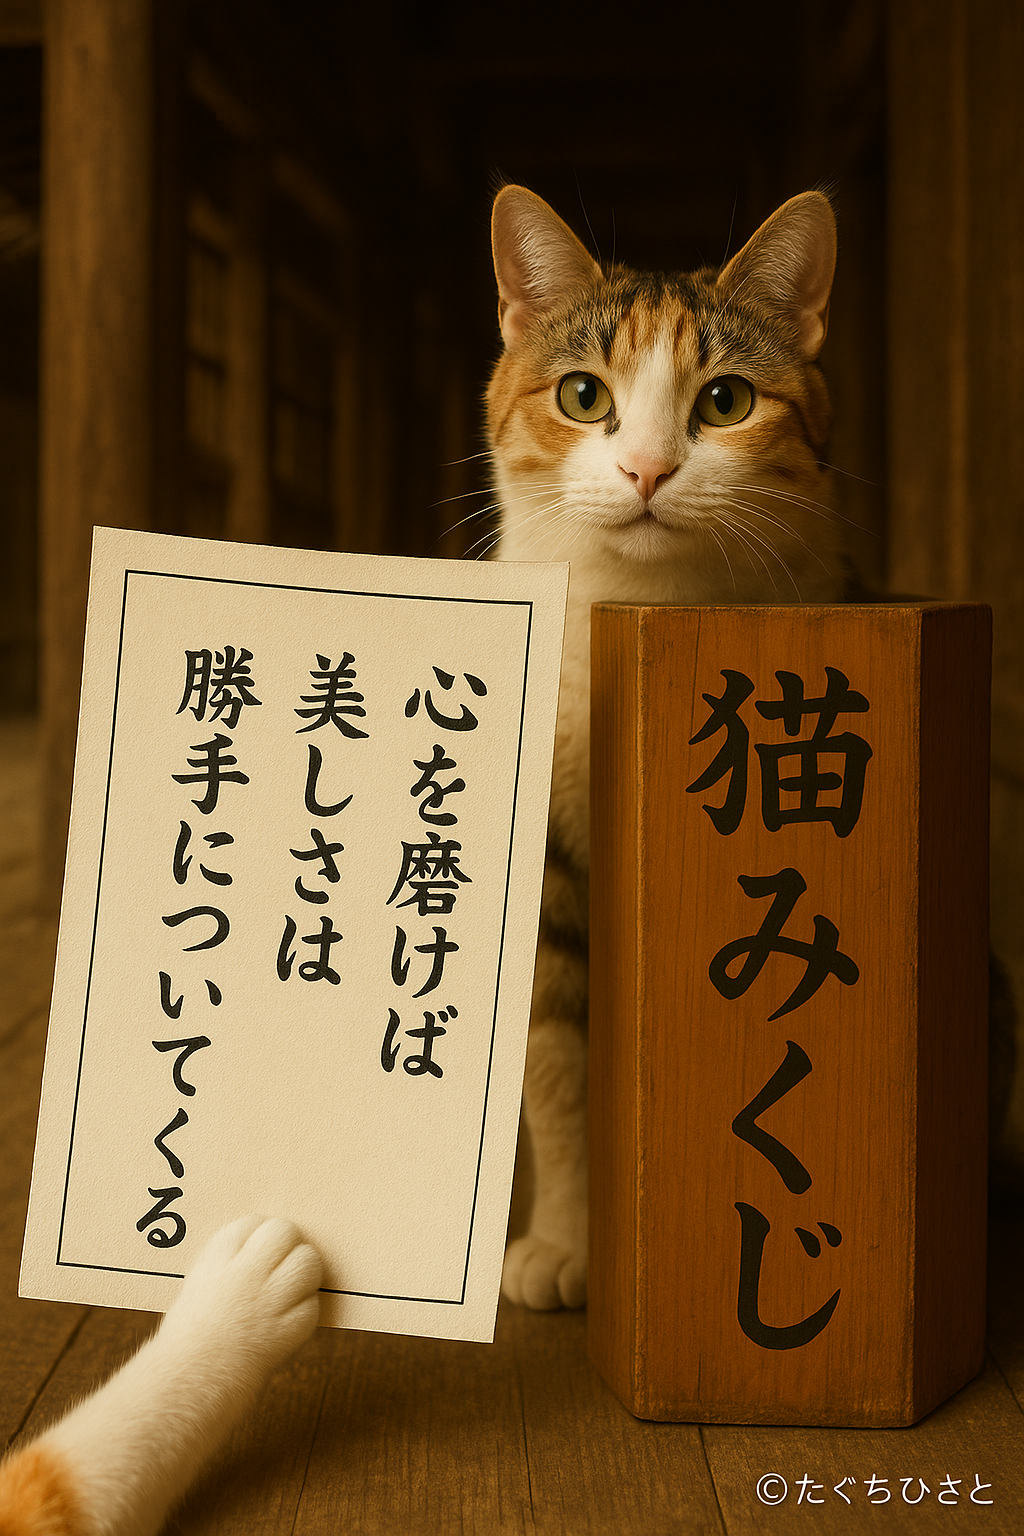 心を磨けば
美しさは
勝手についてくる
猫みくじ
©たぐちひさと